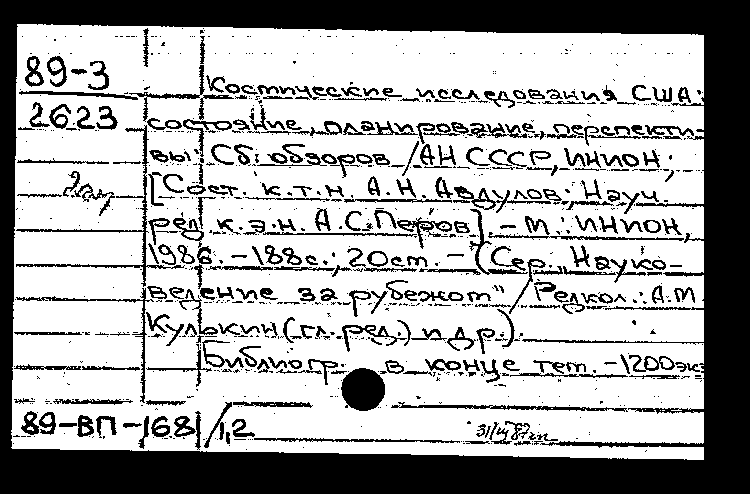 89-3
Космические исследования США:
2623
состояние, планирование, перспекти-
вы: Сб. обзоров / АН СССР, ИНИОН;
[Сост. к.т.н. А.Н. Авдулов; Науч.
ред. к.э.н. А.С. Перов]. - М.: ИНИОН,
1986. - 188с.; 20см. - (Сер. „Науко-
ведение за рубежом" / Редкол.: А.М.
Кулькин (гл. ред.) и др.).
Библиогр. в конце тет. - 1200экз
89-ВП-168 / 1,2